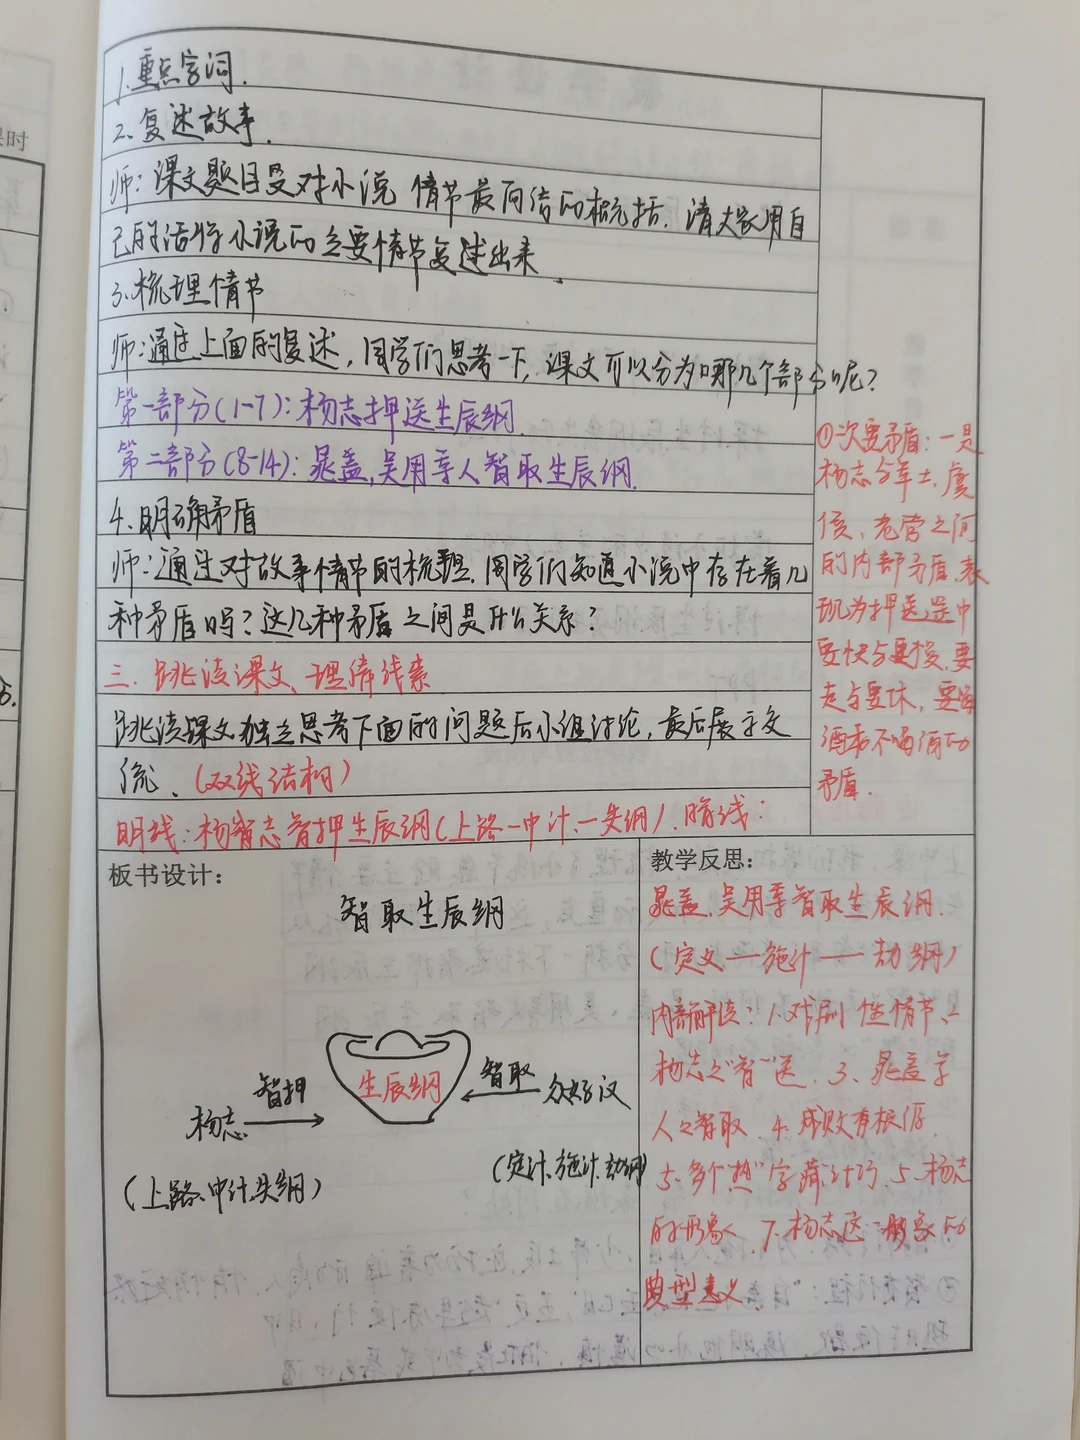 课时
1.重点字词.
2、复述故事.
师：课文题目是对小说情节最简洁的概括.请大家用自
己的话将小说的主要情节复述出来.
3.梳理情节
师:通过上面的复述,同学们思考一下,课文可以分为哪几个部分呢?
第一部分(1-7):杨志押送生辰纲.
第二部分(8-14):晁盖,吴用等人智取生辰纲.
4.明确矛盾
师:通过对故事情节的梳理.同学们知道小说中存在着几
种矛盾吗?这几种矛盾之间是什么关系?
三.跳读课文、理清线索
跳读课文,独立思考下面的问题后小组讨论,最后展示交
流.(双线结构)
明线:杨志智押生辰纲(上路—中计—失纲).暗线:
①次要矛盾:一是
杨志与军士.虞
侯、老营之间
的内部矛盾.表
现为押送途中
要快与要慢,要
走与要休,要喝
酒和不喝酒的
矛盾.
板书设计：
智取生辰纲
杨志
智押
生辰纲
智取
众好汉
(上路、中计、失纲)
(定计、施计、劫纲)
教学反思：
晁盖.吴用等智取生辰纲.
(定义—施计—劫纲)
内部解读:1.戏剧性情节、2
杨志之"智"送.3、晁盖等
人之智取.4.成败有根源.
5.多个"热"字藏计巧.5.杨志
的形象 7.杨志这一形象的
典型意义